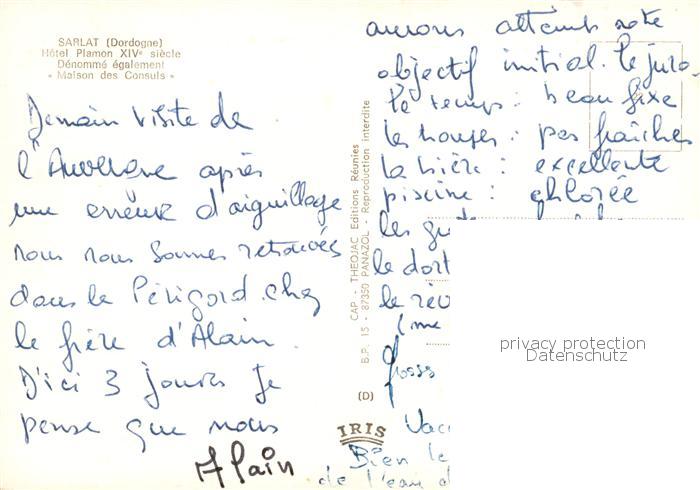 SARLAT (Dordogne)
Hôtel Plamon XIVe siècle
Dénommé également
« Maison des Consuls »
Demain visite de
l'Auvergne après
une erreur d'aiguillage
nous nous sommes retrouvés
dans le Périgord chez
le frère d'Alain.
D'ici 3 jours je
pense que nous
Alain
aurons atteint notre
objectif initial. le jura.
le temps : beau fixe
les : pas fraîches
la bière : excellente
piscine : chlorée
les
le dort
le
Bien le
de l'eau d
CAP - THEOJAC Editions Réunies
B.P. 15 - 87350 PANAZOL - Reproduction interdite
(D)
IRIS
privacy protection
Datenschutz